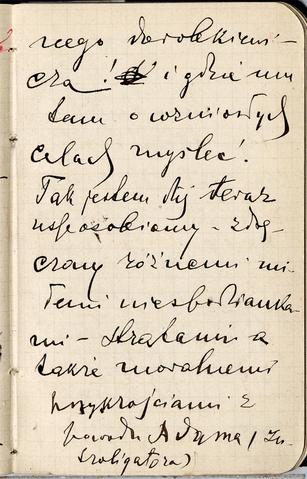 rcego dorobkiewi-
cza! i gdzie mu
tam o wzniosłych
celach myśleć!
Tak jestem dziś teraz
usposobiony - zdrę-
czony różnemi mi-
łemi niespodzianka-
mi - stratami a
także moralnemi
przykrościami z
powodu Adama (In-
troligatora)